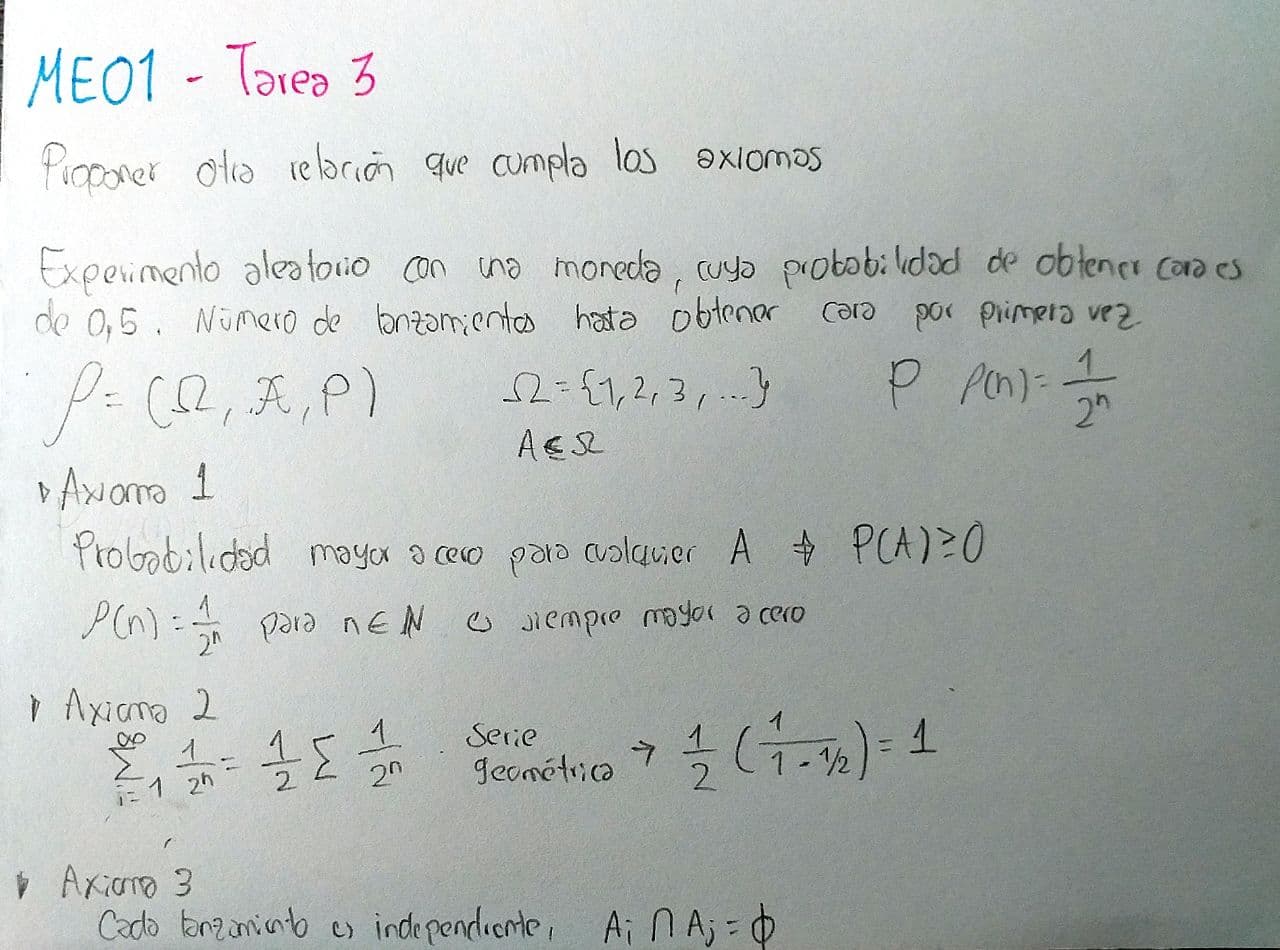 ME01 - Tarea 3
Proponer otra relación que cumpla los axiomas
Experimento aleatorio con una moneda, cuya probabilidad de obtener cara es
de 0,5. Número de lanzamientos hasta obtener cara por primera vez
P = (Ω, A, P) Ω = {1, 2, 3, ...} P P(n) = 1/2ⁿ
A ⊆ Ω
Axioma 1
Probabilidad mayor a cero para cualquier A → P(A) ≥ 0
P(n) = 1/2ⁿ para n ∈ ℕ es siempre mayor a cero
Axioma 2
∞ ∑ i=1 1/2ⁿ = 1/2 ∑ 1/2ⁿ . Serie geométrica → 1/2 (1/(1 - 1/2)) = 1
Axioma 3
Cada lanzamiento es independiente, Aᵢ ∩ Aⱼ = ϕ